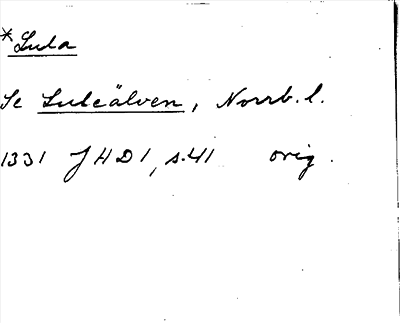 *Lula
Se Luleälven, Norrb. l.
1331 JHD 1, s. 41 orig.